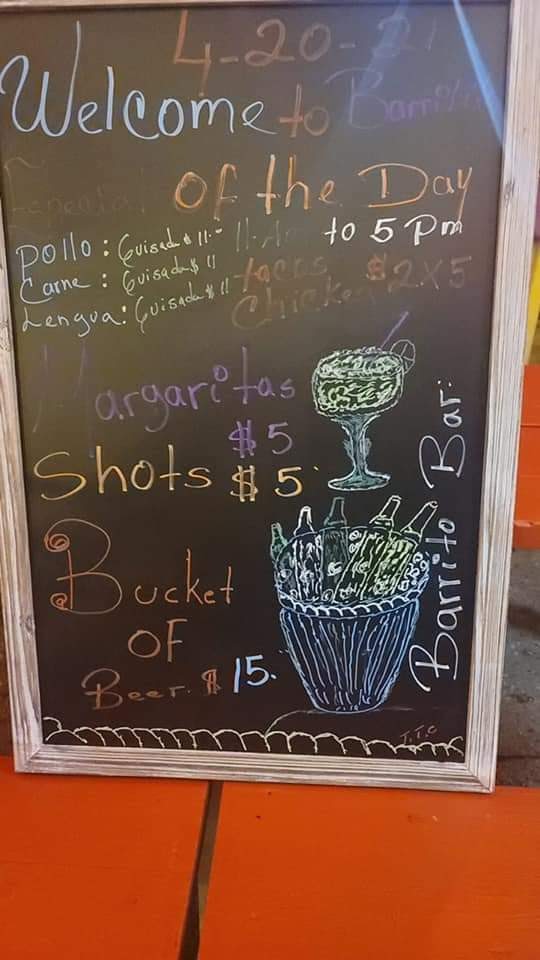 4-20-21
Welcome to Barrito
Especial of the Day
Pollo: Guisada $ 11.-
to 5 Pm
Carne: Guisada $ 11
Tacos $2x5
Lengua: Guisada $ 11
Chicken
Margaritas
$5
Shots $5
Bucket
OF
Beer. $15.
Barrito Bar:
T.T.C